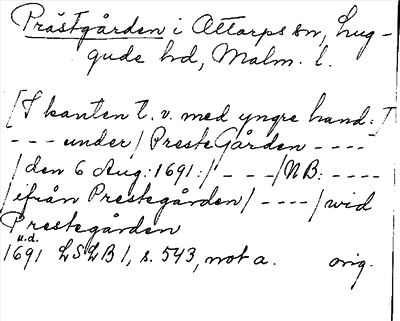 Prästgården i Ottarps sn, Lug-
gude hd, Malm. l.
[I kanten t. v. med yngre hand:]
- - - under / PresteGården - - - -
/ den 6 Aug: 1691: / - - - / NB: - - - -
/ ifrån Prestegården / - - - - / wid
Prestegården
u.d.
1691 LSLB 1, s. 543, not a. orig.